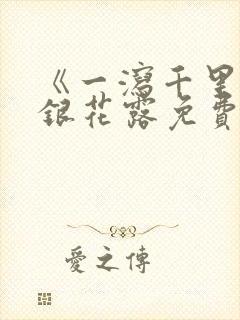 《一瀉千里
銀花露免費
愛之傳